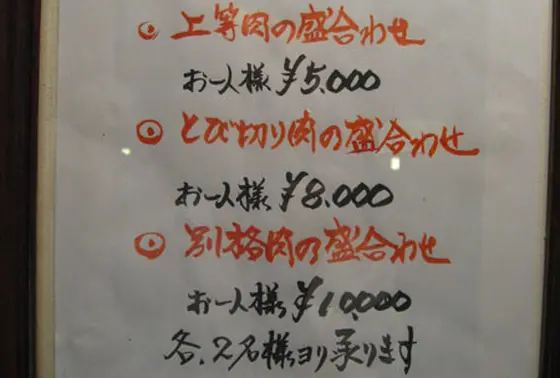 ◉ 上等肉の盛合わせ
お一人様 ¥5,000
◉ とび切り肉の盛合わせ
お一人様 ¥8,000
◉ 別格肉の盛合わせ
お一人様 ¥10,000
各、2名様ヨリ承ります